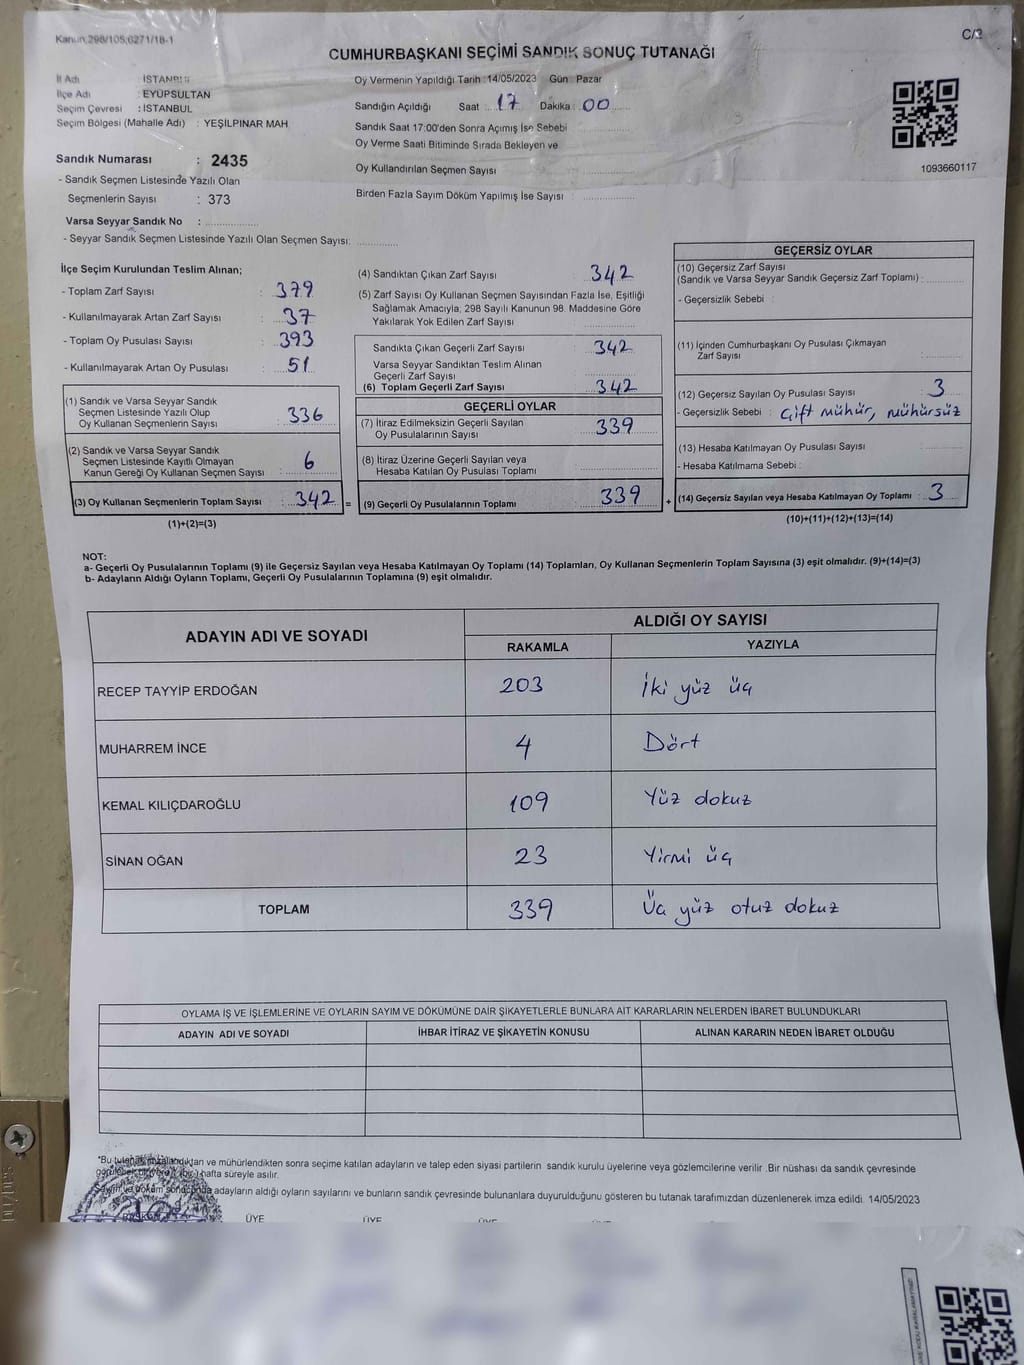 Kanun:298/105;6271/18-1
C/2
CUMHURBAŞKANI SEÇİMİ SANDIK SONUÇ TUTANAĞI
İl Adı : İSTANBUL
İlçe Adı : EYÜPSULTAN
Seçim Çevresi : İSTANBUL
Seçim Bölgesi (Mahalle Adı) : YEŞİLPINAR MAH
Sandık Numarası : 2435
- Sandık Seçmen Listesinde Yazılı Olan
Seçmenlerin Sayısı : 373
Varsa Seyyar Sandık No :
- Seyyar Sandık Seçmen Listesinde Yazılı Olan Seçmen Sayısı:
Oy Vermenin Yapıldığı Tarih :14/05/2023 Gün : Pazar
Sandığın Açıldığı Saat : 17 Dakika : 00
Sandık Saat 17:00'den Sonra Açımış İse Sebebi
Oy Verme Saati Bitiminde Sırada Bekleyen ve
Oy Kullandırılan Seçmen Sayısı
Birden Fazla Sayım Döküm Yapılmış İse Sayısı :
1093660117
İlçe Seçim Kurulundan Teslim Alınan;
- Toplam Zarf Sayısı : 379
- Kullanılmayarak Artan Zarf Sayısı : 37
- Toplam Oy Pusulası Sayısı : 393
- Kullanılmayarak Artan Oy Pusulası : 51
(1) Sandık ve Varsa Seyyar Sandık
Seçmen Listesinde Yazılı Olup
Oy Kullanan Seçmenlerin Sayısı : 336
(2) Sandık ve Varsa Seyyar Sandık
Seçmen Listesinde Kayıtlı Olmayan
Kanun Gereği Oy Kullanan Seçmen Sayısı : 6
(3) Oy Kullanan Seçmenlerin Toplam Sayısı : 342 =
(1)+(2)=(3)
(4) Sandıktan Çıkan Zarf Sayısı : 342
(5) Zarf Sayısı Oy Kullanan Seçmen Sayısından Fazla İse, Eşitliği
Sağlamak Amacıyla, 298 Sayılı Kanunun 98. Maddesine Göre
Yakılarak Yok Edilen Zarf Sayısı
Sandıkta Çıkan Geçerli Zarf Sayısı : 342
Varsa Seyyar Sandıktan Teslim Alınan
Geçerli Zarf Sayısı
(6) Toplam Geçerli Zarf Sayısı : 342
GEÇERLİ OYLAR
(7) İtiraz Edilmeksizin Geçerli Sayılan
Oy Pusulalarının Sayısı : 339
(8) İtiraz Üzerine Geçerli Sayılan veya
Hesaba Katılan Oy Pusulası Toplamı :
(9) Geçerli Oy Pusulalarının Toplamı : 339 +
GEÇERSİZ OYLAR
(10) Geçersiz Zarf Sayısı
(Sandık ve Varsa Seyyar Sandık Geçersiz Zarf Toplamı) :
- Geçersizlik Sebebi :
(11) İçinden Cumhurbaşkanı Oy Pusulası Çıkmayan
Zarf Sayısı :
(12) Geçersiz Sayılan Oy Pusulası Sayısı : 3
- Geçersizlik Sebebi : Çift mühür, mühürsüz
(13) Hesaba Katılmayan Oy Pusulası Sayısı :
- Hesaba Katılmama Sebebi :
(14) Geçersiz Sayılan veya Hesaba Katılmayan Oy Toplamı : 3
(10)+(11)+(12)+(13)=(14)
NOT:
a- Geçerli Oy Pusulalarının Toplamı (9) ile Geçersiz Sayılan veya Hesaba Katılmayan Oy Toplamı (14) Toplamları, Oy Kullanan Seçmenlerin Toplam Sayısına (3) eşit olmalıdır. (9)+(14)=(3)
b- Adayların Aldığı Oyların Toplamı, Geçerli Oy Pusulalarının Toplamına (9) eşit olmalıdır.
ADAYIN ADI VE SOYADI
ALDIĞI OY SAYISI
RAKAMLA YAZIYLA
RECEP TAYYİP ERDOĞAN 203 İki yüz üç
MUHARREM İNCE 4 Dört
KEMAL KILIÇDAROĞLU 109 Yüz dokuz
SİNAN OĞAN 23 Yirmi üç
TOPLAM 339 Üç yüz otuz dokuz
OYLAMA İŞ VE İŞLEMLERİNE VE OYLARIN SAYIM VE DÖKÜMÜNE DAİR ŞİKAYETLERLE BUNLARA AİT KARARLARIN NELERDEN İBARET BULUNDUKLARI
ADAYIN ADI VE SOYADI İHBAR İTİRAZ VE ŞİKAYETİN KONUSU ALINAN KARARIN NEDEN İBARET OLDUĞU
*Bu tutanak imzalandıktan ve mühürlendikten sonra seçime katılan adayların ve talep eden siyasi partilerin sandık kurulu üyelerine veya gözlemcilerine verilir .Bir nüshası da sandık çevresinde
hafta süreyle asılır.
Sayım ve döküm sonucunda adayların aldığı oyların sayılarını ve bunların sandık çevresinde bulunanlara duyurulduğunu gösteren bu tutanak tarafımızdan düzenlenerek imza edildi. 14/05/2023
BAŞKAN ÜYE ÜYE ÜYE ÜYE